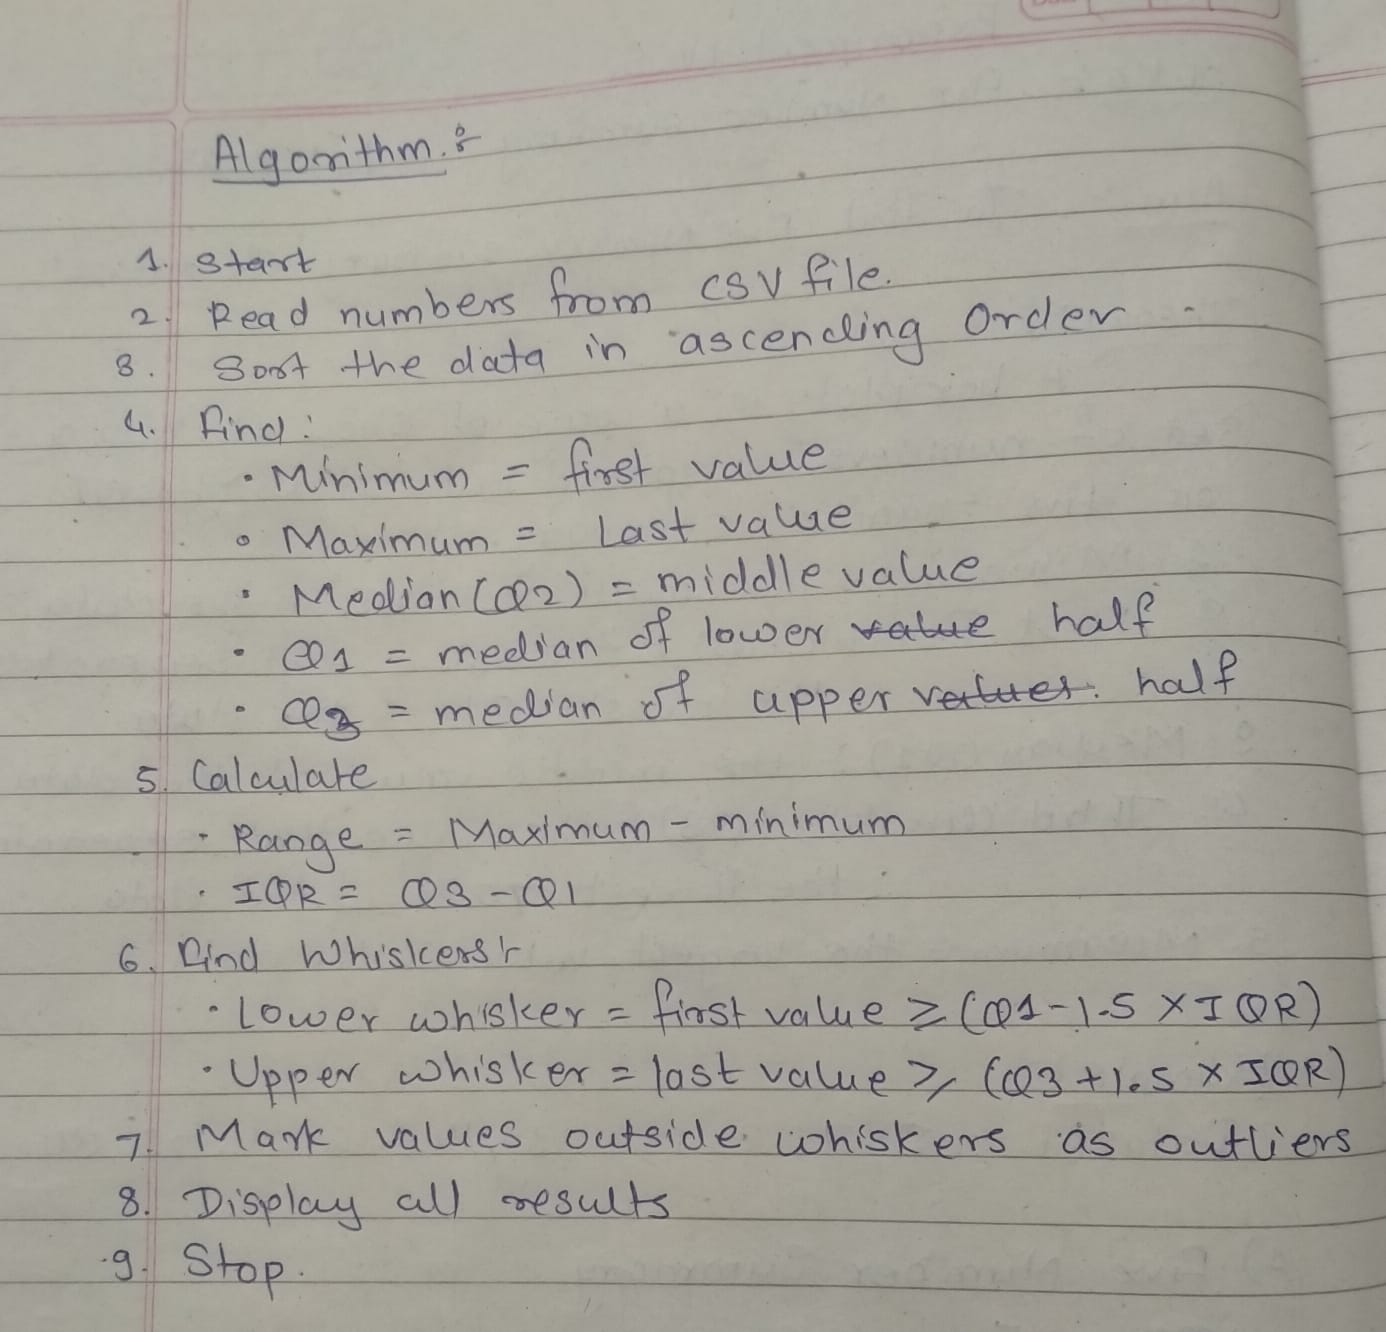 Algorithm :
1. Start
2. Read numbers from CSV file.
3. Sort the data in ascending order
4. Find :
• Minimum = first value
• Maximum = Last value
• Median (Q2) = middle value
• Q1 = median of lower value half
• Q3 = median of upper values. half
5. Calculate
• Range = Maximum - minimum
• IQR = Q3 - Q1
6. Find Whiskers :
• Lower whisker = first value ≥ (Q1 - 1.5 × IQR)
• Upper whisker = last value ≥ (Q3 + 1.5 × IQR)
7. Mark values outside whiskers as outliers
8. Display all results
9. Stop.